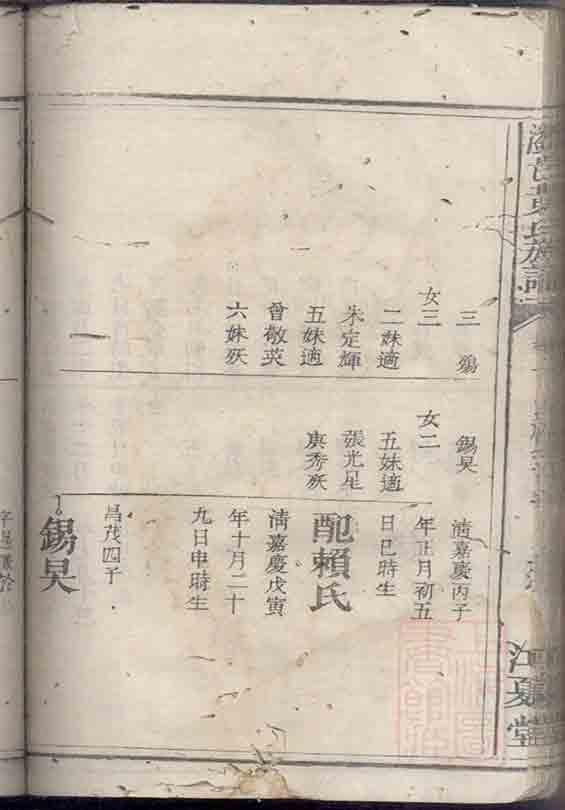 黃氏族譜
江夏堂
三殤
女三
二妹適
朱定輝
五妹適
曾敬英
六妹殀
錫昊
女二
五妹適
張光星
庚秀殀
清嘉慶丙子
年正月初五
日巳時生
配賴氏
清嘉慶戊寅
年十月二十
九日申時生
昌茂四子
錫昊